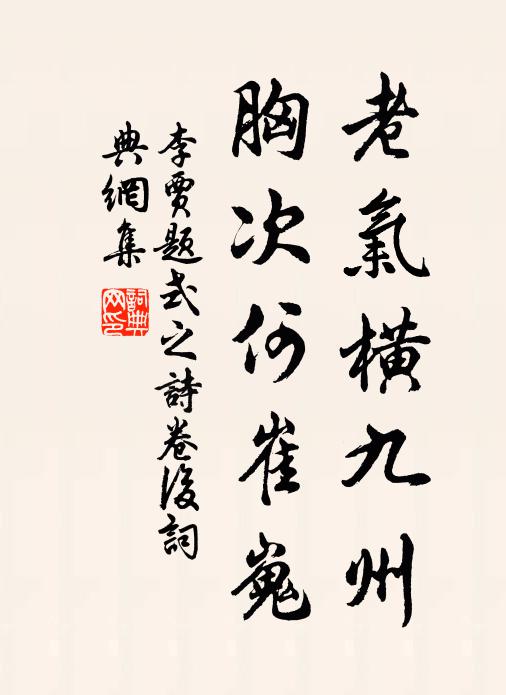 老氣橫九州
胸次何崔嵬
李賈題式之詩卷後詞
典網集
詞典
网印